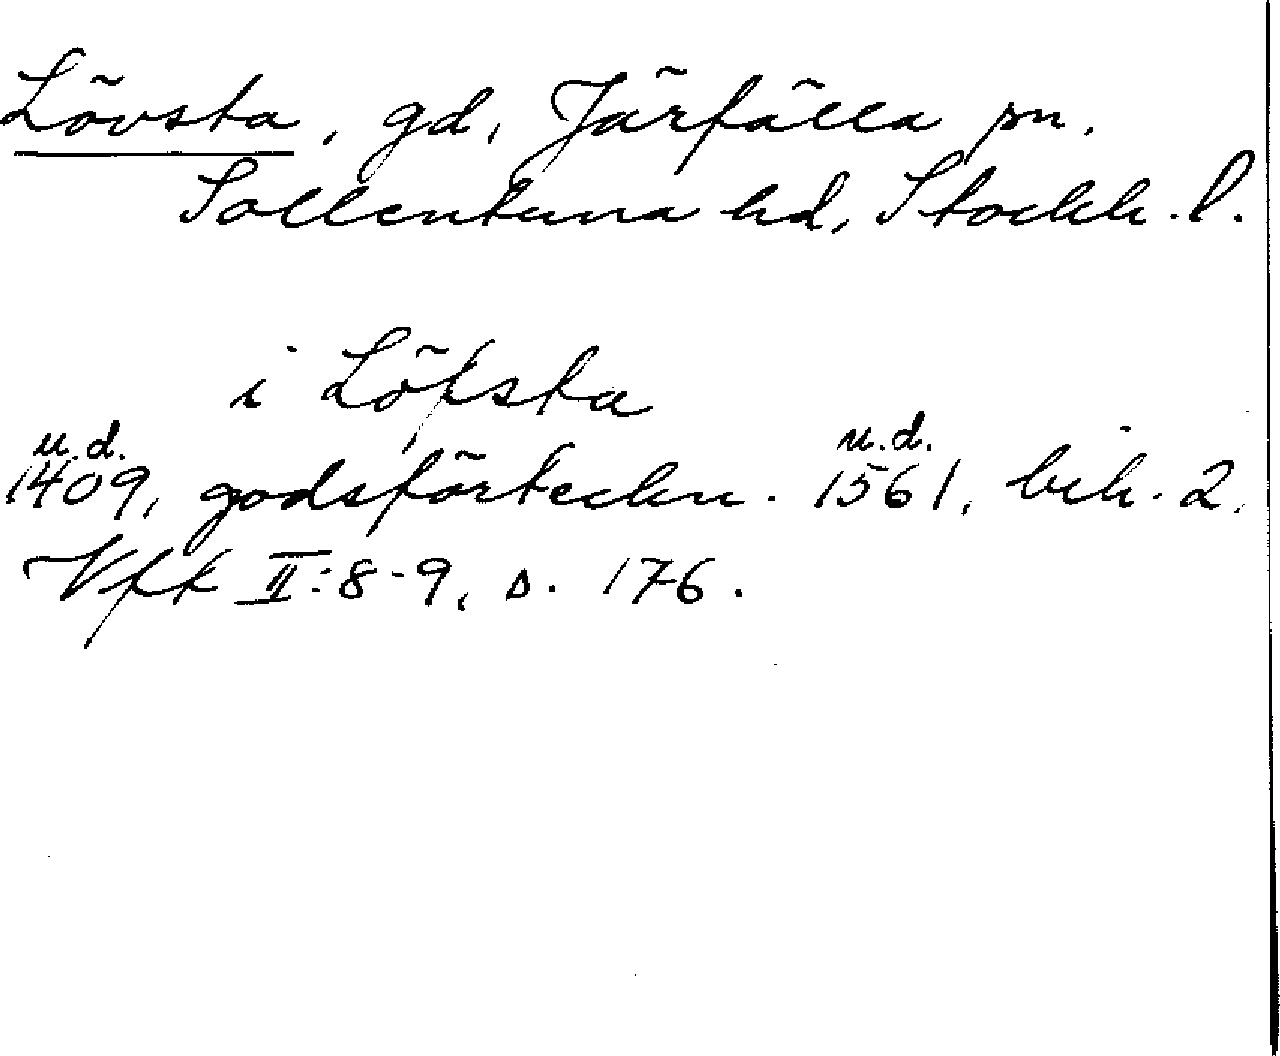 Lövsta, gd, Järfälla sn,
Sollentuna hd, Stockh. l.
i Löfsta
u.d. u.d.
1409, godsförteckn. 1561, bih. 2,
Vfk II:8-9, s. 176.